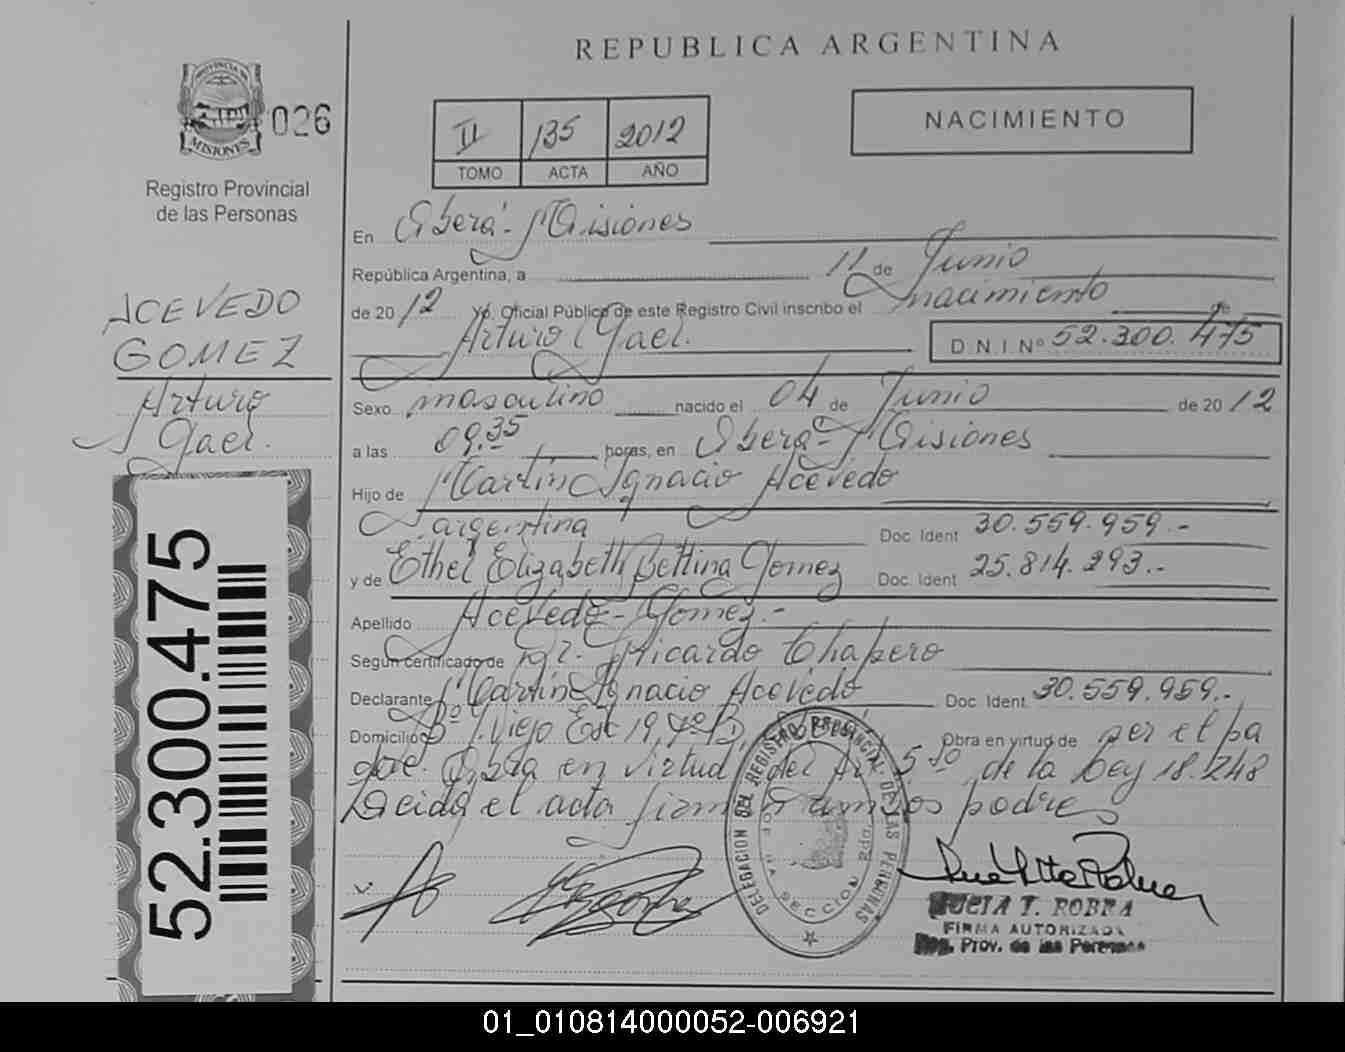 REPUBLICA ARGENTINA
PROVINCIA DE
MISIONES
026
Registro Provincial
de las Personas
II 135 2012
TOMO ACTA AÑO
NACIMIENTO
ACEVEDO
GOMEZ
Arturo
Gael.
52.300.475
En Oberá - Misiones
República Argentina, a 11 de Junio
de 2012 Yo, Oficial Público de este Registro Civil inscribo el nacimiento de
Arturo Gael. D.N.I. Nº 52.300.475
Sexo masculino nacido el 04 de Junio de 2012
a las 09.35 horas, en Oberá - Misiones
Hijo de Martín Ignacio Acevedo
argentina Doc. Ident 30.559.959.-
y de Ethel Elizabeth Bettina Gomez Doc. Ident 25.814.293.-
Apellido Acevedo - Gomez.-
Según certificado de Dr. Ricardo Chapero
Declarante Martín Ignacio Acevedo Doc. Ident 30.559.959.-
Domicilio Bº Viejo Esc 19, 4º B, Obra en virtud de ser el pa
dre. Obra en virtud del Art 5to de la Ley 18.248
Leída el acta firman ambos padres
DELEGACION DEL REGISTRO PROVINCIAL DE LAS PERSONAS
SECCION 2da.
LUCIA T. ROBRA
FIRMA AUTORIZADA
Reg. Prov. de las Personas
01_010814000052-006921